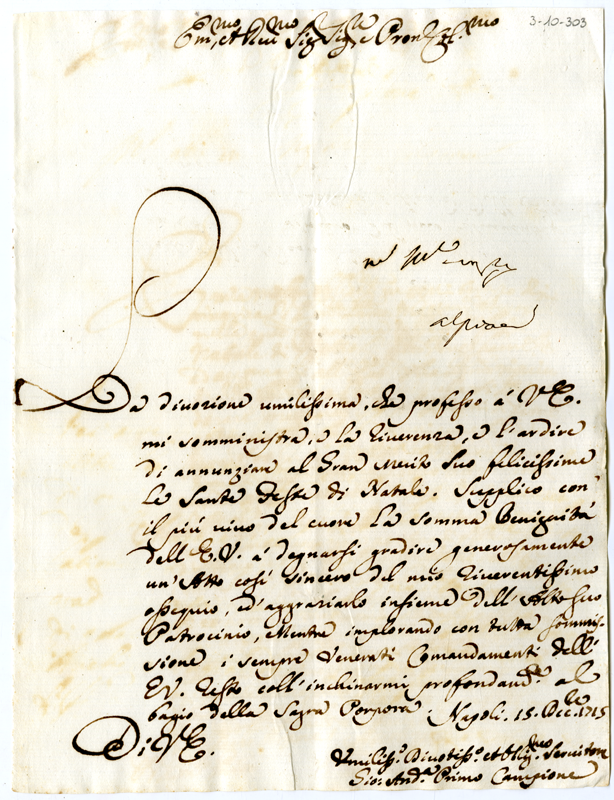 3-10-303
Em.mo et Rev.mo Sig.r Sig.r e Pron Col.mo
La divozione umilissima, che professo á V.E.
mi somministra, e la riverenza, e l'ardire
di annunziare al Gran Merito Suo felicissime
le Sante Feste di Natale. Supplico con
il piú vivo del cuore la somma Benignitá
dell'E.V. á degnarsi gradire generosamente
un'Atto cosí sincero del mio riverentissimo
ossequio, ed'aggraziarlo insieme dell'Alto suo
Patrocinio, Mentre implorando con tutta sommis-
sione i sempre Venerati Comandamenti dell'
E.V. resto coll'inchinarmi profondam.te al
bagio della Sagra Porpora. Napoli. 15. Dic.bre 1715
Di V.E.
Umiliss.o Divotiss.o et Oblig.mo Servitore
Gio: And.a Primo Campione